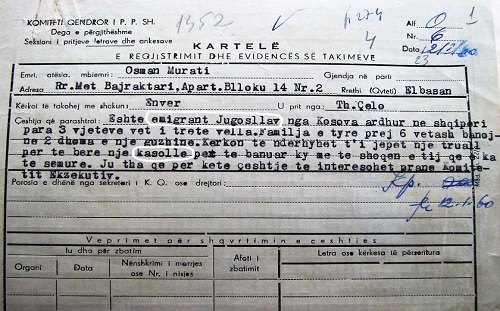 KOMITETI QENDROR I P. P. SH.
Dega e përgjithëshme
Seksioni i pritjeve letrave dhe ankesave
1352
fq 274
4
Alf. O 1
Nr. 6
Data 12/2/60
23
KARTELË
E REGJISTRIMIT DHE EVIDENCËS SË TAKIMEVE
Emri, atësia, mbiemri: Osman Murati Gjendja në parti
Adresa Rr.Met Bajraktari,Apart.Blloku 14 Nr.2 Rrethi (Qyteti) Elbasan
Kërkoi të takohej me shokun: Enver U prit nga: Th.Çelo
Çështja që parashtroi: Eshte emigrant Jugosllav nga Kosova ardhur ne shqiperi
para 3 vjeteve vet i trete vella.Familja e tyre prej 6 vetash banoj-
ne 2 dhoma e nje guzhine.Kerkon te nderhyhet t'i jepet nje truall
per te bere nje kasolle per te banuar ky me te shoqen e tij qe e ka
te semure. Ju tha qe per kete çeshtje te interesohet prane Komite-
tit Ekzekutiv.
Porosia e dhënë nga sekretari i K. Q. ose drejtori:
12.1.60
Veprimet për shqyrtimin e çështjes
Iu dha për zbatim
Organi
Data
Nënshkrimi i marrjes
ose Nr. i nisjes
Afati i
zbatimit
Letra ose kërkesa të përsëritura